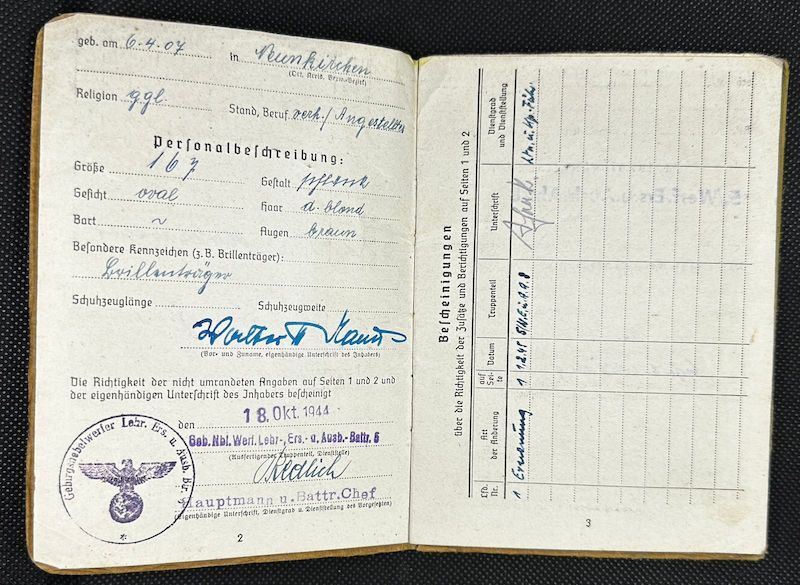 geb. am 6.4.07 in Neunkirchen
(Ort, Kreis, Verw.-Bezirk)
Religion ggl Stand, Beruf verh./Angestellter
Personalbeschreibung:
Größe 167 Gestalt schlank
Gesicht oval Haar d.blond
Bart ~ Augen braun
Besondere Kennzeichen (z.B. Brillenträger):
Brillenträger
Schuhzeuglänge Schuhzeugweite
Walter
(Vor- und Zuname, eigenhändige Unterschrift des Inhabers)
Die Richtigkeit der nicht umrandeten Angaben auf Seiten 1 und 2 und
der eigenhändigen Unterschrift des Inhabers bescheinigt
den 18. Okt. 1944
Geb. Nbl. Werf. Lehr-, Ers.- u. Ausb.- Battr. 6
(Ausfertigender Truppenteil, Dienststelle)
Redlich
Hauptmann u. Battr. Chef
(Eigenhändige Unterschrift, Dienstgrad u. Dienststellung des Vorgesetzten)
Gebirgsnebelwerfer Lehr. Ers. u. Ausb. Bttr. 6
2
Bescheinigungen
über die Richtigkeit der Zusätze und Berichtigungen auf Seiten 1 und 2
Lfd. Nr. Art der Änderung auf Seite Datum Truppenteil Unterschrift Dienstgrad und Dienststellung
1 Ernennung 1 1.2.45
3